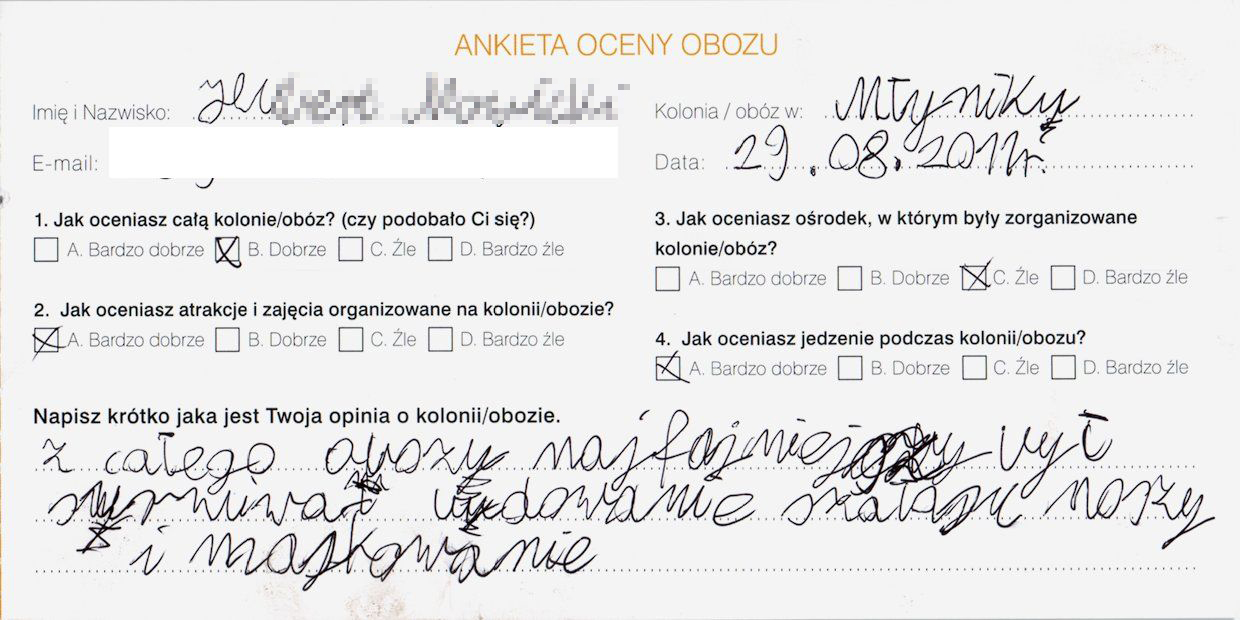 ANKIETA OCENY OBOZU
Imię i Nazwisko:
Kolonia / obóz w: Młyniku
E-mail:
Data: 29.08.2011r.
1. Jak oceniasz całą kolonie/obóz? (czy podobało Ci się?)
A. Bardzo dobrze B. Dobrze C. Źle D. Bardzo źle
2. Jak oceniasz atrakcje i zajęcia organizowane na kolonii/obozie?
A. Bardzo dobrze B. Dobrze C. Źle D. Bardzo źle
3. Jak oceniasz ośrodek, w którym były zorganizowane
kolonie/obóz?
A. Bardzo dobrze B. Dobrze C. Źle D. Bardzo źle
4. Jak oceniasz jedzenie podczas kolonii/obozu?
A. Bardzo dobrze B. Dobrze C. Źle D. Bardzo źle
Napisz krótko jaka jest Twoja opinia o kolonii/obozie.
z całego obozu najfajniejszy był
budowanie noszy
i maskowanie